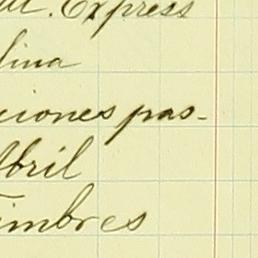 Express
lina
ciones pas-
Abril
Timbres